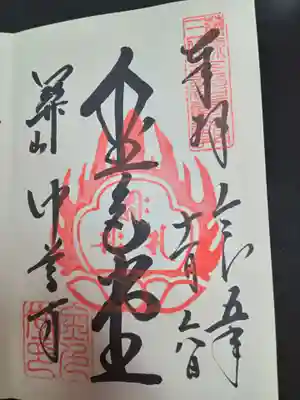 奉拝
令和五年
十一月六日
金色堂
関山
中尊寺